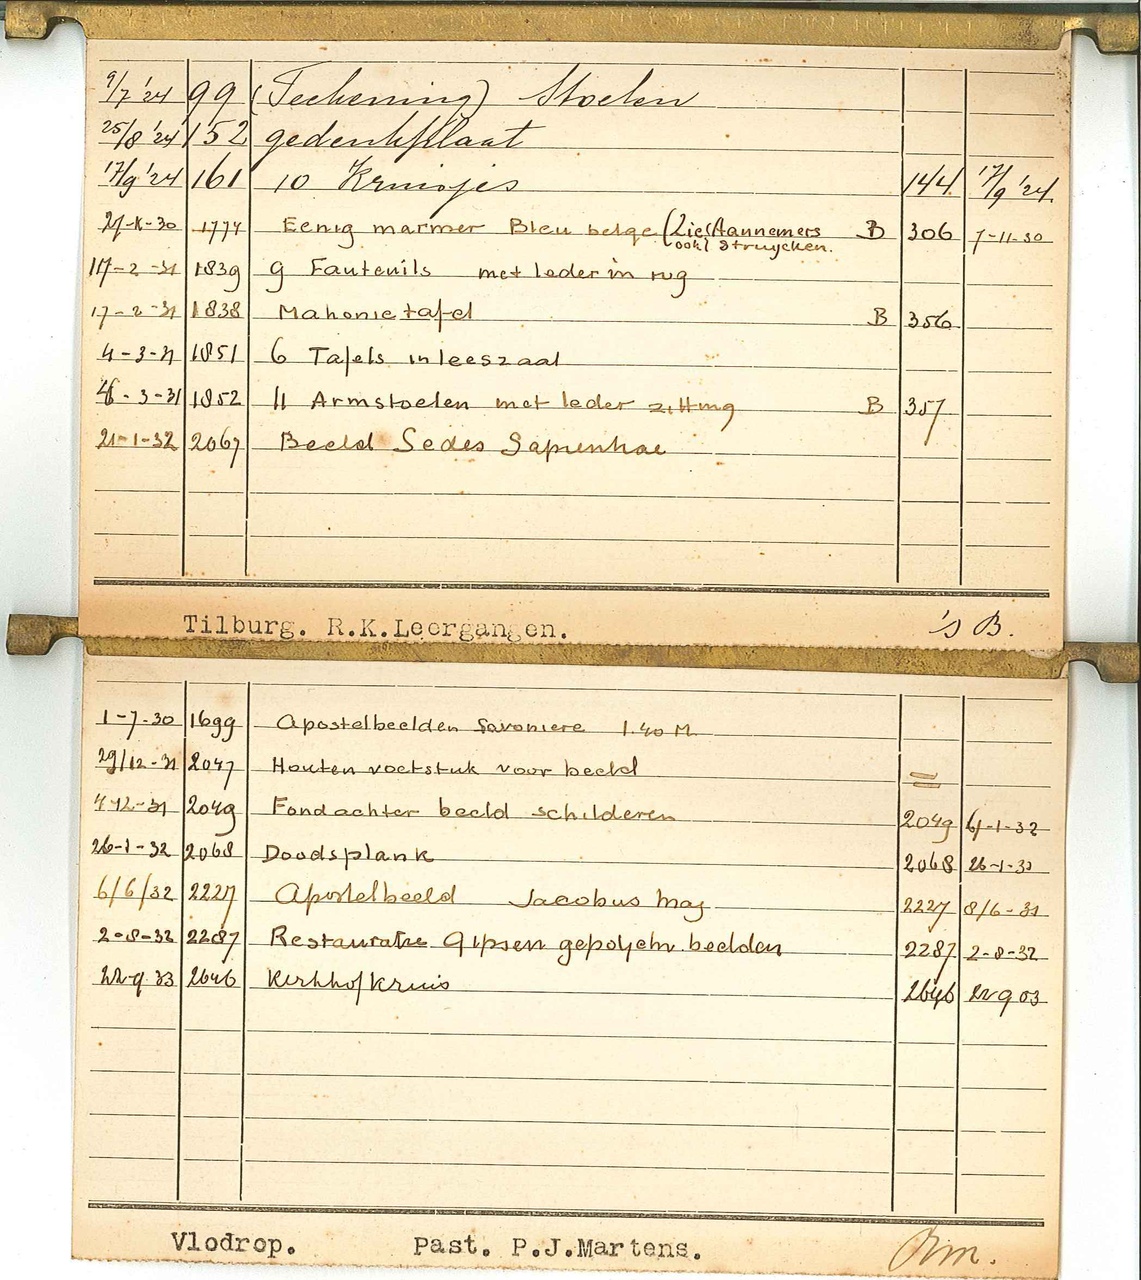 9/7 '24 99 (Teekening) Stoelen
25/8 '24 152 gedenkplaat
17/9 '24 161 10 Kruisjes 144 17/9 '24
27-X-30 1774 Eenig marmer Bleu belge (Zie Aannemers B 306 7-11-30
ook Struycken.
17-2-31 1839 9 Fauteuils met leder in rug
17-2-31 1838 Mahonie tafel B 356
4-3-31 1851 6 Tafels in leeszaal
4-3-31 1852 11 Armstoelen met leder zitting B 357
21-1-32 2067 Beeld Sedes Sapientiae
Tilburg. R.K.Leergangen. 's B.
1-7-30 1699 Apostelbeelden Savoniere 1.40 M
29/12-31 2047 Houten voetstuk voor beeld =
12-31 2049 Fond achter beeld schilderen 2049 6-1-32
26-1-32 2068 Doodsplank 2068 26-1-32
6/6/32 2227 Apostelbeeld Jacobus Maj 2227 8/6-32
2-8-32 2287 Restauratie Gipsen gepolych beelden 2287 2-8-32
22-9 33 2646 Kerkhofkruis 2646 22 9 03
Vlodrop. Past. P.J.Martens. Rm.